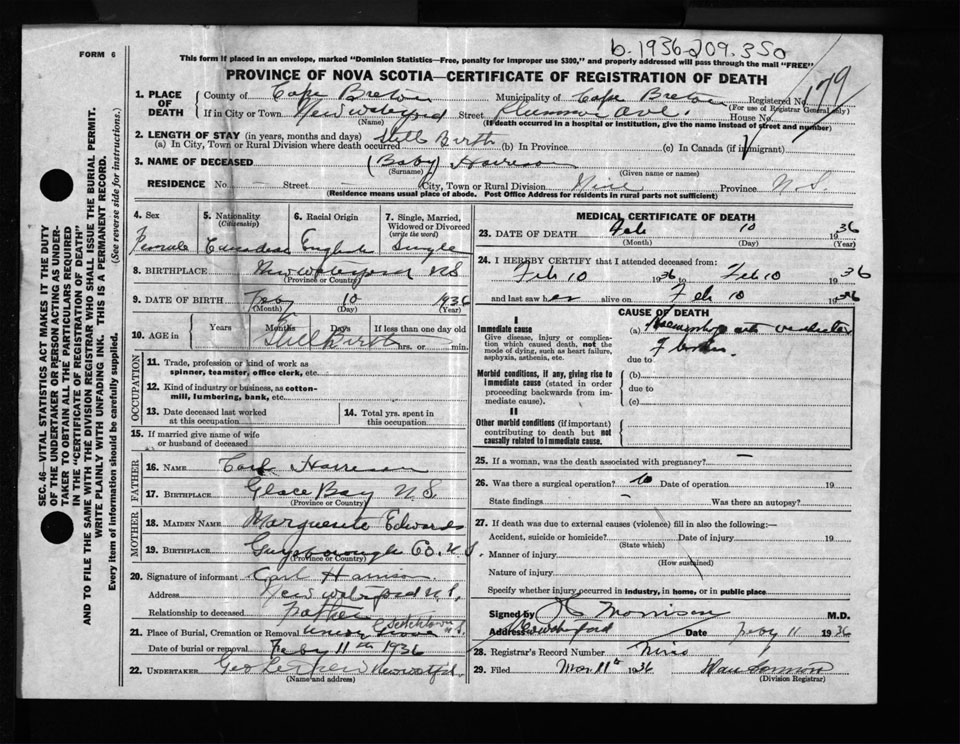 FORM 6
b. 1936-209.350
This form if placed in an envelope, marked "Dominion Statistics—Free, penalty for improper use $300," and properly addressed will pass through the mail "FREE"
PROVINCE OF NOVA SCOTIA—CERTIFICATE OF REGISTRATION OF DEATH
179
1. PLACE OF DEATH
County of Cape Breton Municipality of Cape Breton Registered No.
(For use of Registrar General only)
If in City or Town New Waterford Street Plummer Ave House No.
(Name) (If death occurred in a hospital or institution, give the name instead of street and number)
2. LENGTH OF STAY (in years, months and days) Still Birth
(a) In City, Town or Rural Division where death occurred (b) In Province (c) In Canada (if immigrant)
3. NAME OF DECEASED (Baby) Harrison
(Surname) (Given name or names)
RESIDENCE No. — Street — City, Town or Rural Division Province N.S.
(Residence means usual place of abode. Post Office Address for residents in rural parts not sufficient)
4. Sex Female
5. Nationality (Citizenship) Canadian
6. Racial Origin English
7. Single, Married, Widowed or Divorced (write the word) Single
8. BIRTHPLACE New Waterford NS
(Province or Country)
9. DATE OF BIRTH Feby 10 1936
(Month) (Day) (Year)
10. AGE in Years Months Days If less than one day old
Stillbirth hrs. or min.
OCCUPATION
11. Trade, profession or kind of work as spinner, teamster, office clerk, etc.
12. Kind of industry or business, as cotton-mill, lumbering, bank, etc.
13. Date deceased last worked at this occupation
14. Total yrs. spent in this occupation
15. If married give name of wife or husband of deceased
FATHER
16. NAME Carl Harrison
17. BIRTHPLACE Glace Bay N.S
(Province or Country)
MOTHER
18. MAIDEN NAME Marguerite Edwards
19. BIRTHPLACE Guysborough Co. N.S.
(Province or Country)
20. Signature of informant Carl Harrison
Address New Waterford N.S.
Relationship to deceased Father
21. Place of Burial, Cremation or Removal Union Grove Scotchtown N.S.
Date of burial or removal Feby 11th 1936
22. UNDERTAKER Geo
(Name and address)
MEDICAL CERTIFICATE OF DEATH
23. DATE OF DEATH Feb 10 1936
(Month) (Day) (Year)
24. I HEREBY CERTIFY that I attended deceased from:
Feb 10 1936 to Feb 10 1936
and last saw her alive on Feb 10 1936
CAUSE OF DEATH
I
Immediate cause
Give disease, injury or complication which caused death, not the mode of dying, such as heart failure, asphyxia, asthenia, etc.
(a) Haemorrhage into ventricles
due to
Morbid conditions, if any, giving rise to immediate cause (stated in order proceeding backwards from immediate cause).
(b)
due to
(c)
II
Other morbid conditions (if important) contributing to death but not causally related to immediate cause.
25. If a woman, was the death associated with pregnancy? —
26. Was there a surgical operation? No Date of operation 19
State findings — Was there an autopsy?
27. If death was due to external causes (violence) fill in also the following:—
Accident, suicide or homicide? Date of injury 19
(State which)
Manner of injury
(How sustained)
Nature of injury
Specify whether injury occurred in industry, in home, or in public place
Signed by J C Morrison M.D.
Address New Waterford Date Feby 11 1936
28. Registrar's Record Number
29. Filed Mar 11th 1936
(Division Registrar)
SEC. 46—VITAL STATISTICS ACT MAKES IT THE DUTY
OF THE UNDERTAKER OR PERSON ACTING AS UNDER-
TAKER TO OBTAIN ALL THE PARTICULARS REQUIRED
IN THE "CERTIFICATE OF REGISTRATION OF DEATH"
AND TO FILE THE SAME WITH THE DIVISION REGISTRAR WHO SHALL ISSUE THE BURIAL PERMIT.
WRITE PLAINLY WITH UNFADING INK. THIS IS A PERMANENT RECORD.
Every item of information should be carefully supplied. (See reverse side for instructions.)